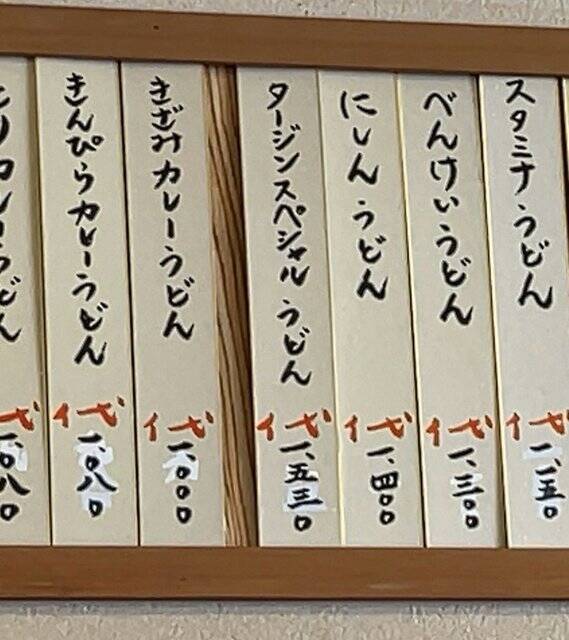 スタミナうどん
代 一、一五〇
べんけいうどん
代 一、三〇〇
にしんうどん
代 一、四〇〇
タージンスペシャルうどん
代 一、五三〇
きざみカレーうどん
代 一、〇〇〇
きんぴらカレーうどん
代 一、〇八〇
カレーうどん
代 一、〇八〇